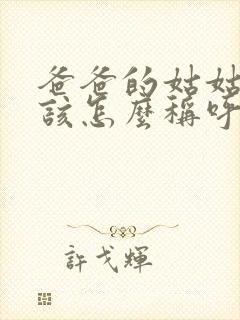 爸爸的姑姑
該怎麼稱呼
許戈輝